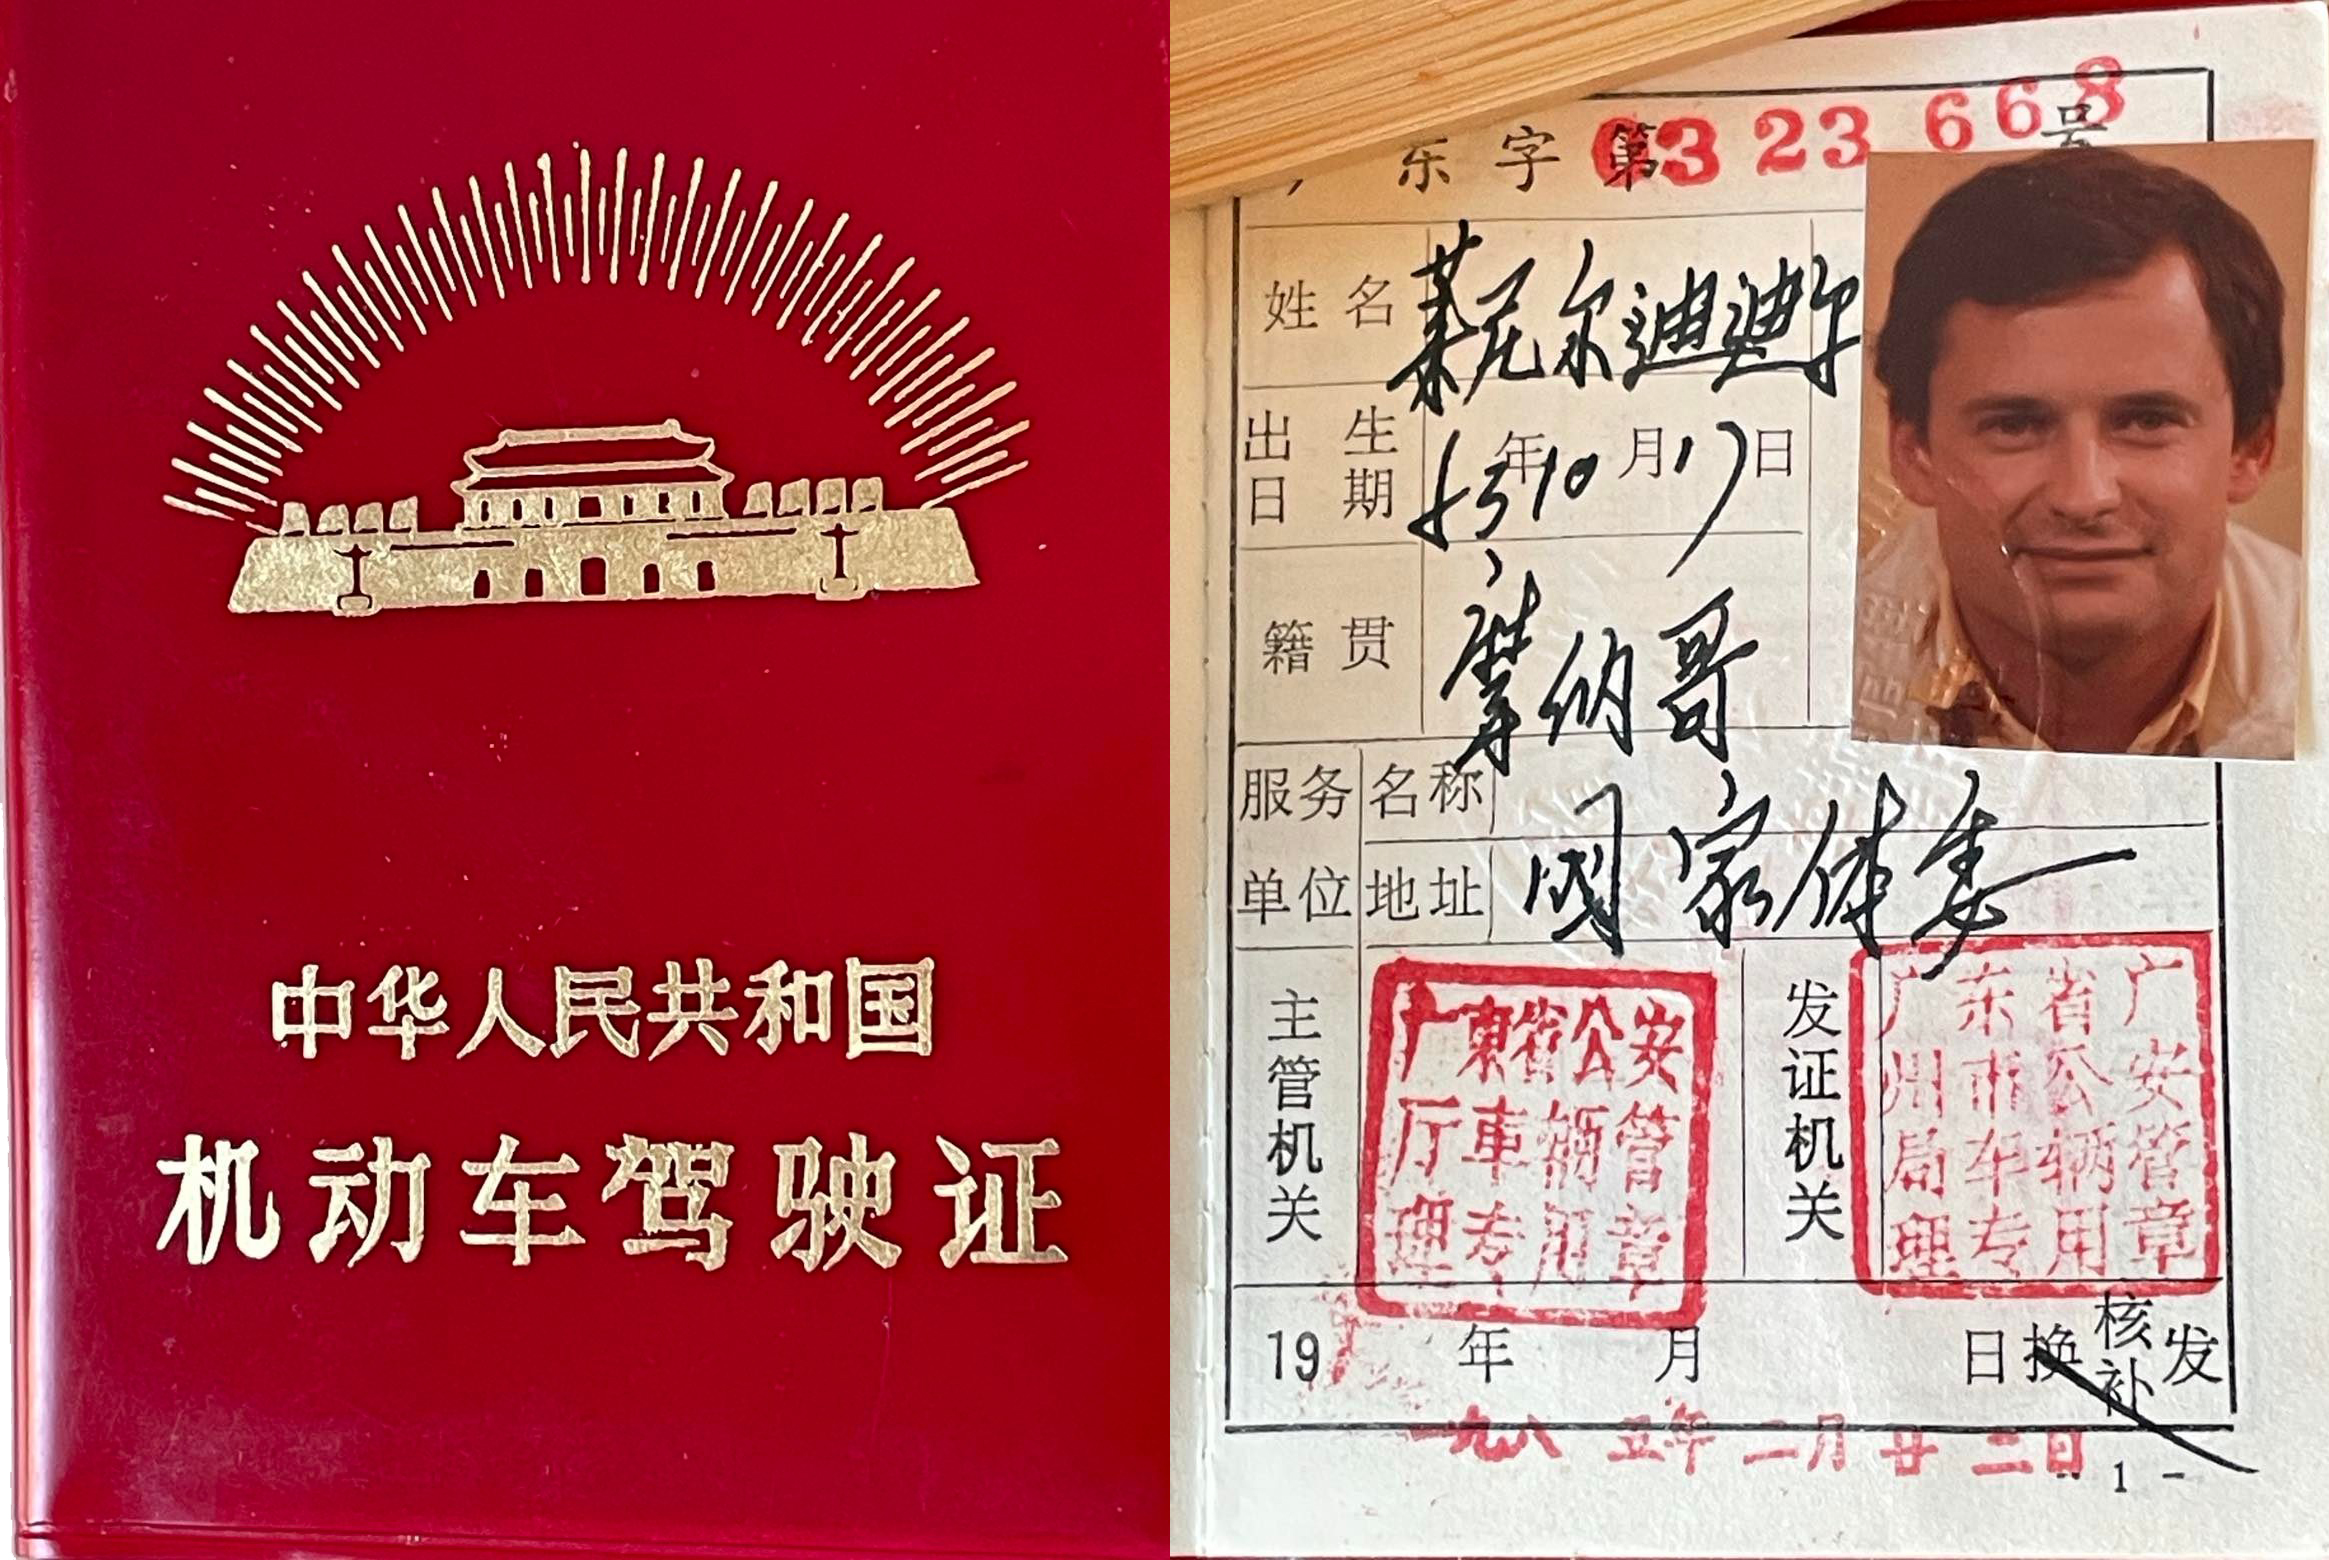 中华人民共和国
机动车驾驶证
东字第0323668号
姓名 莱尼尔迪迪尔
出生日期 53年10月17日
籍贯 摩纳哥
服务单位 名称
地址 国家体委
主管机关
广東省公安
厅車辆管
理专用章
发证机关
广东省广
州市公安
局车辆管
理专用章
19 年 月 日换核补发
一九八五年二月廿二日
- 1 -